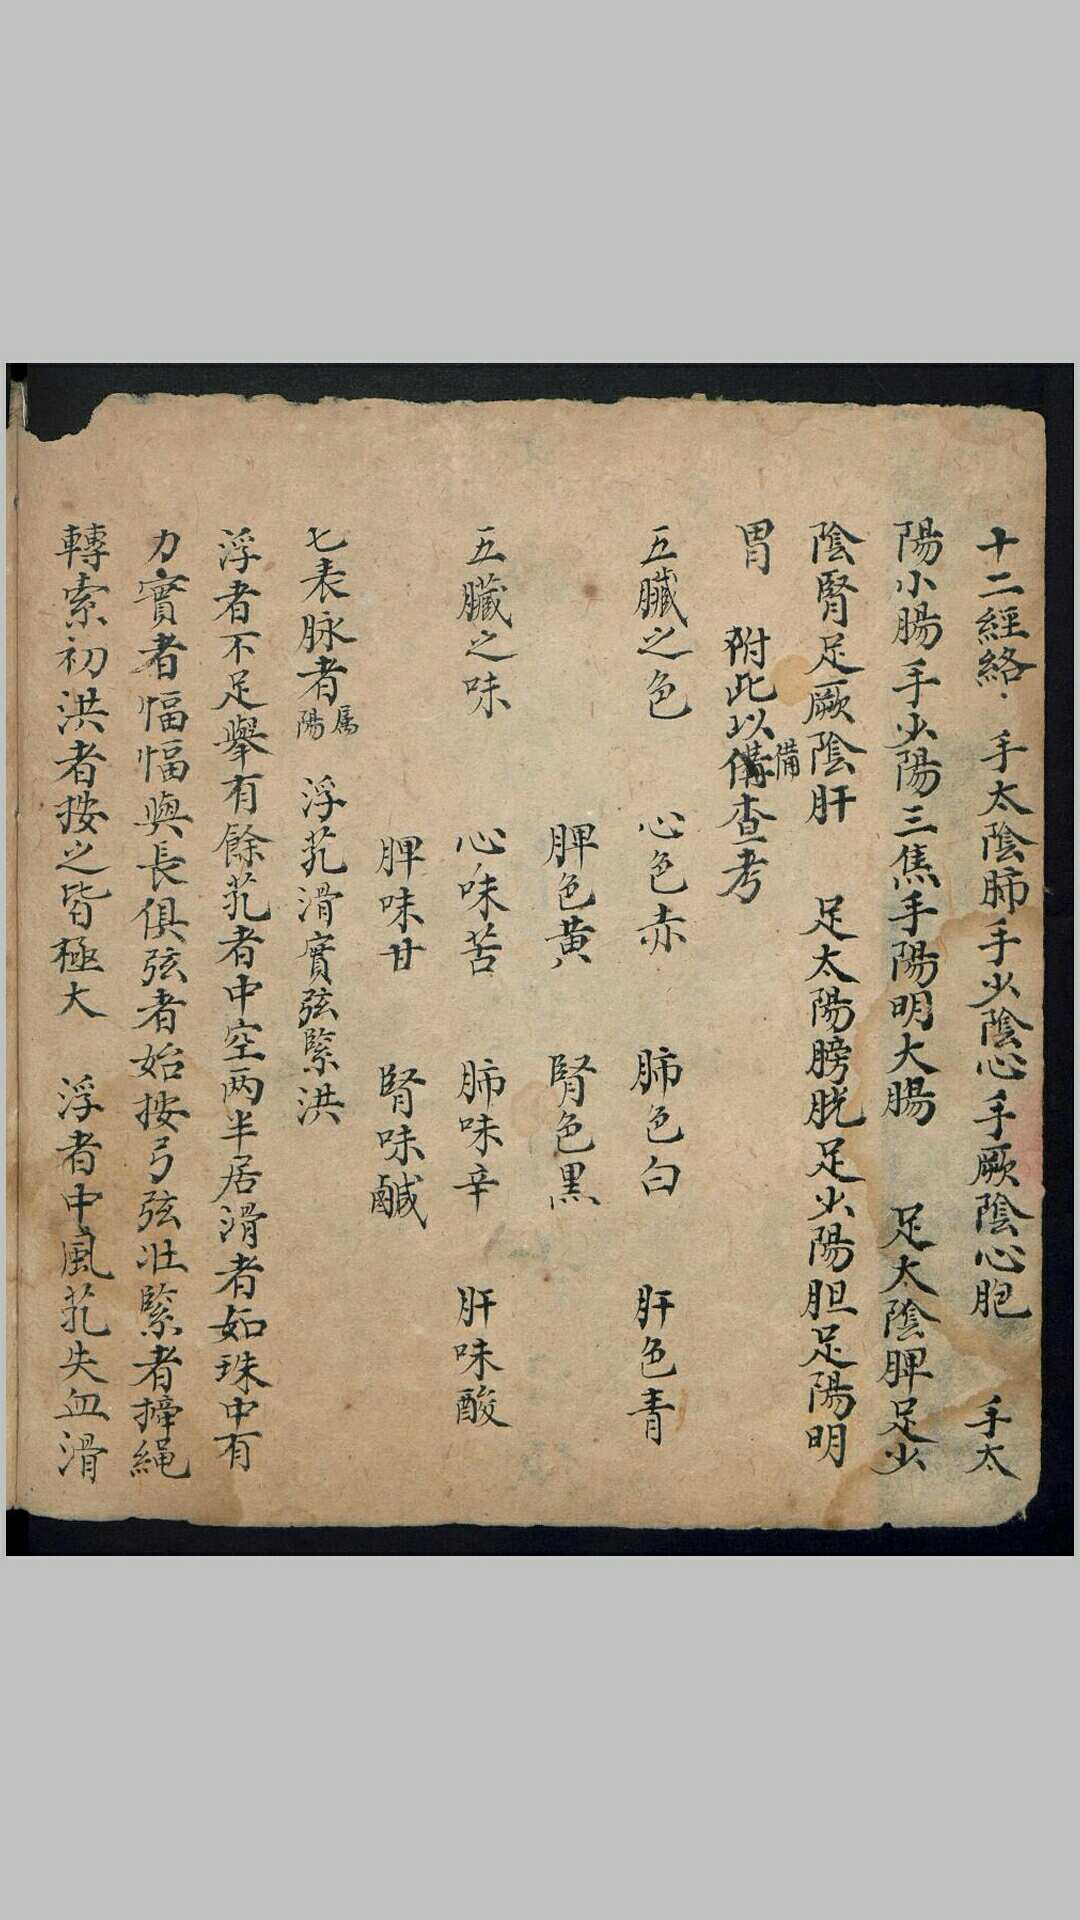 十二經絡．手太陰肺手少陰心手厥陰心胞　手太
陽小腸手少陽三焦手陽明大腸　足太陰脾足少
陰腎足厥陰肝　足太陽膀胱足少陽胆足陽明
胃　附此以備查考
備
五臟之色　心色赤　肺色白　肝色青
脾色黃　腎色黑
五臟之味　心味苦　肺味辛　肝味酸
脾味甘　腎味鹹
七表脉者屬陽　浮芤滑實弦緊洪
浮者不足舉有餘芤者中空两半居滑者如珠中有
力實者愊愊與長俱弦者始按弓弦壯緊者繩
轉索初洪者按之皆極大　浮者中風芤失血滑